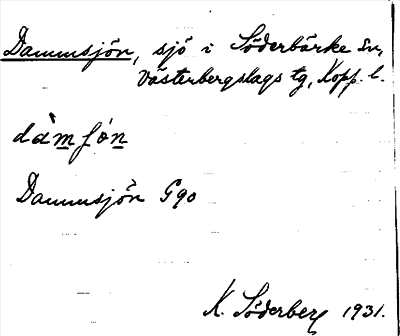 Dammsjön, sjö i Söderbärke sn,
Västerbergslags tg, Kopp. l.
dàmʃón
Dammsjön G90
K. Söderberg 1931.